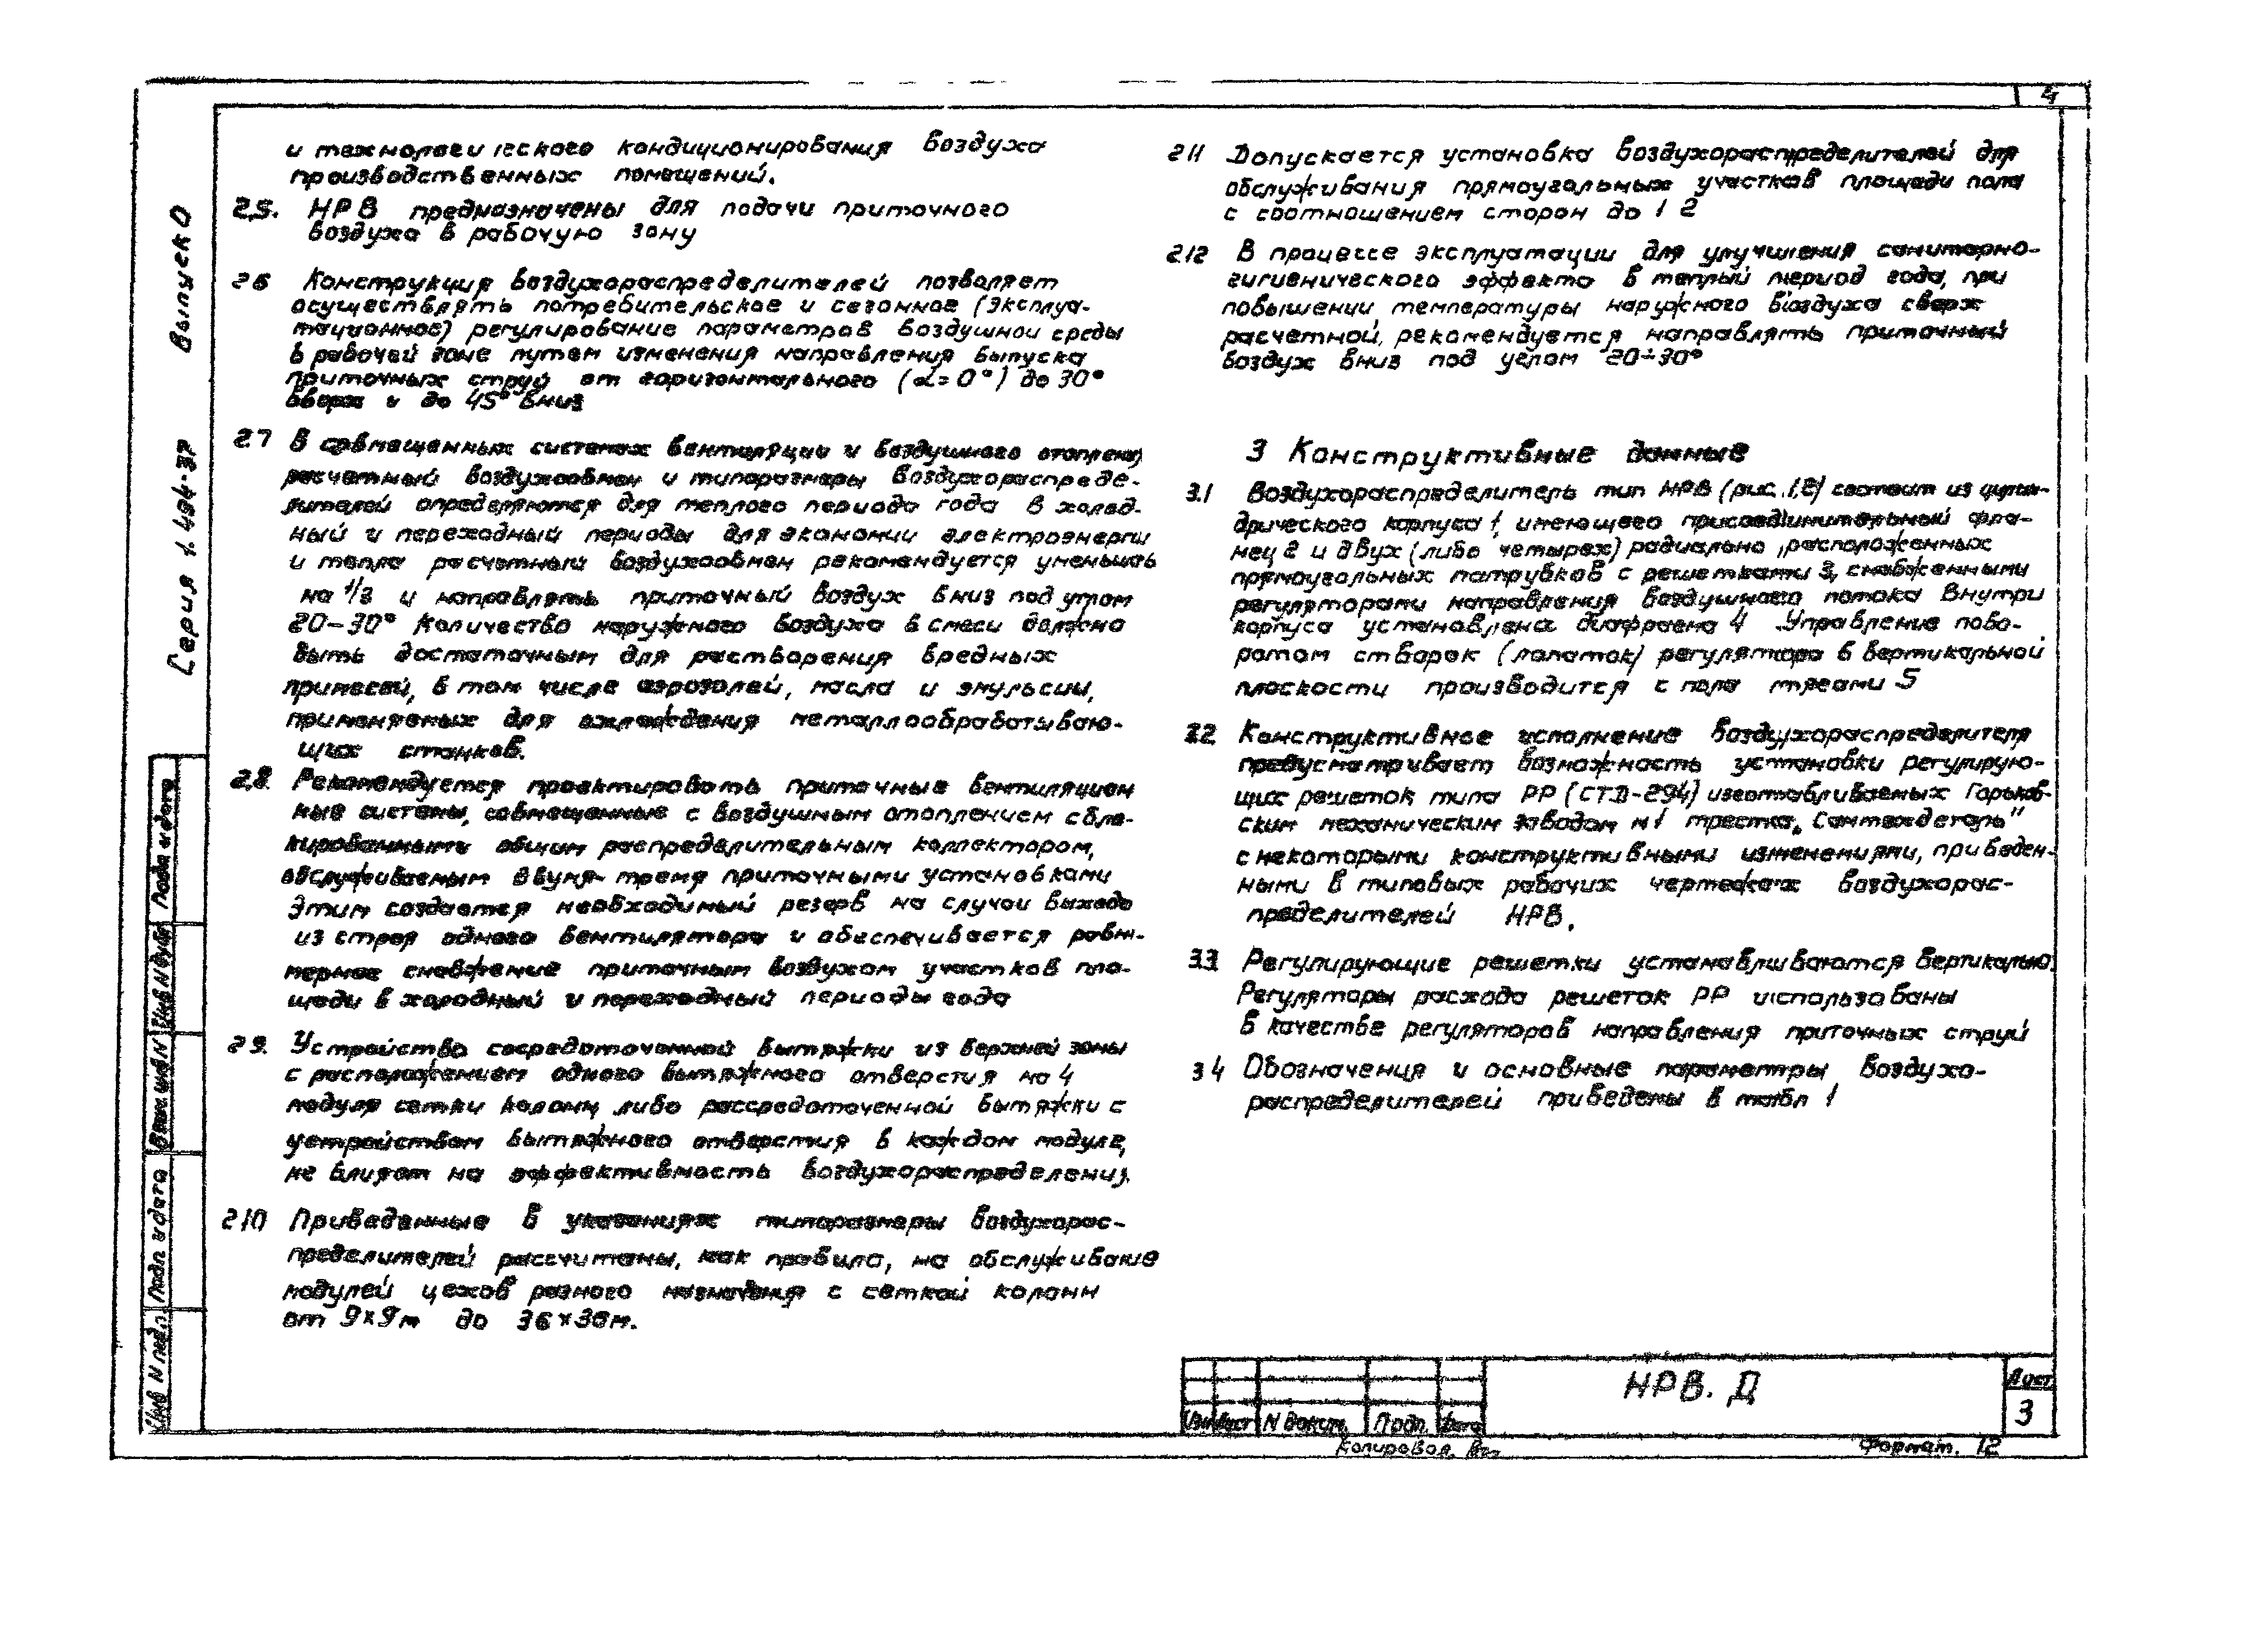 4
Серия 1.494-37 Выпуск 0
и технологического кондиционирования воздуха
производственных помещений.
2.5. НРВ предназначены для подачи приточного
воздуха в рабочую зону
2 6 Конструкция воздухораспределителей позволяет
осуществлять потребительское и сезонное (эксплуа-
тационное) регулирование параметров воздушной среды
в рабочей зоне путем изменения направления выпуска
приточных струй от горизонтального (α=0°) до 30°
вверх и до 45° вниз
2 7 В совмещенных системах вентиляции и воздушного отопления
расчетный воздухообмен и типоразмеры воздухораспреде-
лителей определяются для теплого периода года В холод-
ный и переходный периоды для экономии электроэнергии
и тепла расчетный воздухообмен рекомендуется уменьшать
на 1/3 и направлять приточный воздух вниз под углом
20-30° Количество наружного воздуха в смеси должно
быть достаточным для растворения вредных
примесей, в том числе аэрозолей, масла и эмульсии,
применяемых для охлаждения металлообрабатываю-
щих станков.
2.8. Рекомендуется проектировать приточные вентиляцион
ные системы, совмещенные с воздушным отоплением сбло-
кированными общим распределительным коллектором,
обслуживаемым двумя-тремя приточными установками
Этим создается необходимый резерв на случай выхода
из строя одного вентилятора и обеспечивается равно-
мерное снабжение приточным воздухом участков пло-
щади в холодный и переходный периоды года
2 9. Устройство сосредоточенной вытяжки из верхней зоны
с расположением одного вытяжного отверстия на 4
модуля сетки колонн либо рассредоточенной вытяжки с
устройством вытяжного отверстия в каждом модуле,
не влияет на эффективность воздухораспределения.
2 10 Приведенные в указаниях типоразмеры воздухорас-
пределителей рассчитаны, как правило, на обслуживание
модулей цехов разного назначения с сеткой колонн
от 9х9м до 36х36м.
2 11 Допускается установка воздухораспределителей для
обслуживания прямоугольных участков площади пола
с соотношением сторон до 1 2
2 12 В процессе эксплуатации для улучшения санитарно-
гигиенического эффекта в теплый период года, при
повышении температуры наружного воздуха сверх
расчетной, рекомендуется направлять приточный
воздух вниз под углом 20÷30°
3 Конструктивные данные
3.1 Воздухораспределитель тип НРВ (рис. 1,2) состоит из цилин-
дрического корпуса 1, имеющего присоединительный фла-
нец 2 и двух (либо четырех) радиально расположенных
прямоугольных патрубков с решетками 3, снабженными
регуляторами направления воздушного потока Внутри
корпуса установлена диафрагма 4 Управление пово-
ротом створок (лопаток) регулятора в вертикальной
плоскости производится с пола тягами 5
3.2 Конструктивное исполнение воздухораспределителя
предусматривает возможность установки регулирую-
щих решеток типа РР (СТД-294) изготавливаемых Горьков-
ским механическим заводом N1 треста „Сантехдеталь"
с некоторыми конструктивными изменениями, приведен-
ными в типовых рабочих чертежах воздухорас-
пределителей НРВ.
3.3 Регулирующие решетки устанавливаются вертикально.
Регуляторы расхода решеток РР использованы
в качестве регуляторов направления приточных струй
3 4 Обозначения и основные параметры воздухо-
распределителей приведены в табл 1
Инв N подл. Подп и дата Взам инв N Инв N дубл Подп и дата
Изм Лист N докум. Подп. Дата
НРВ. Д
Лист
3
Копировал
Формат. 12